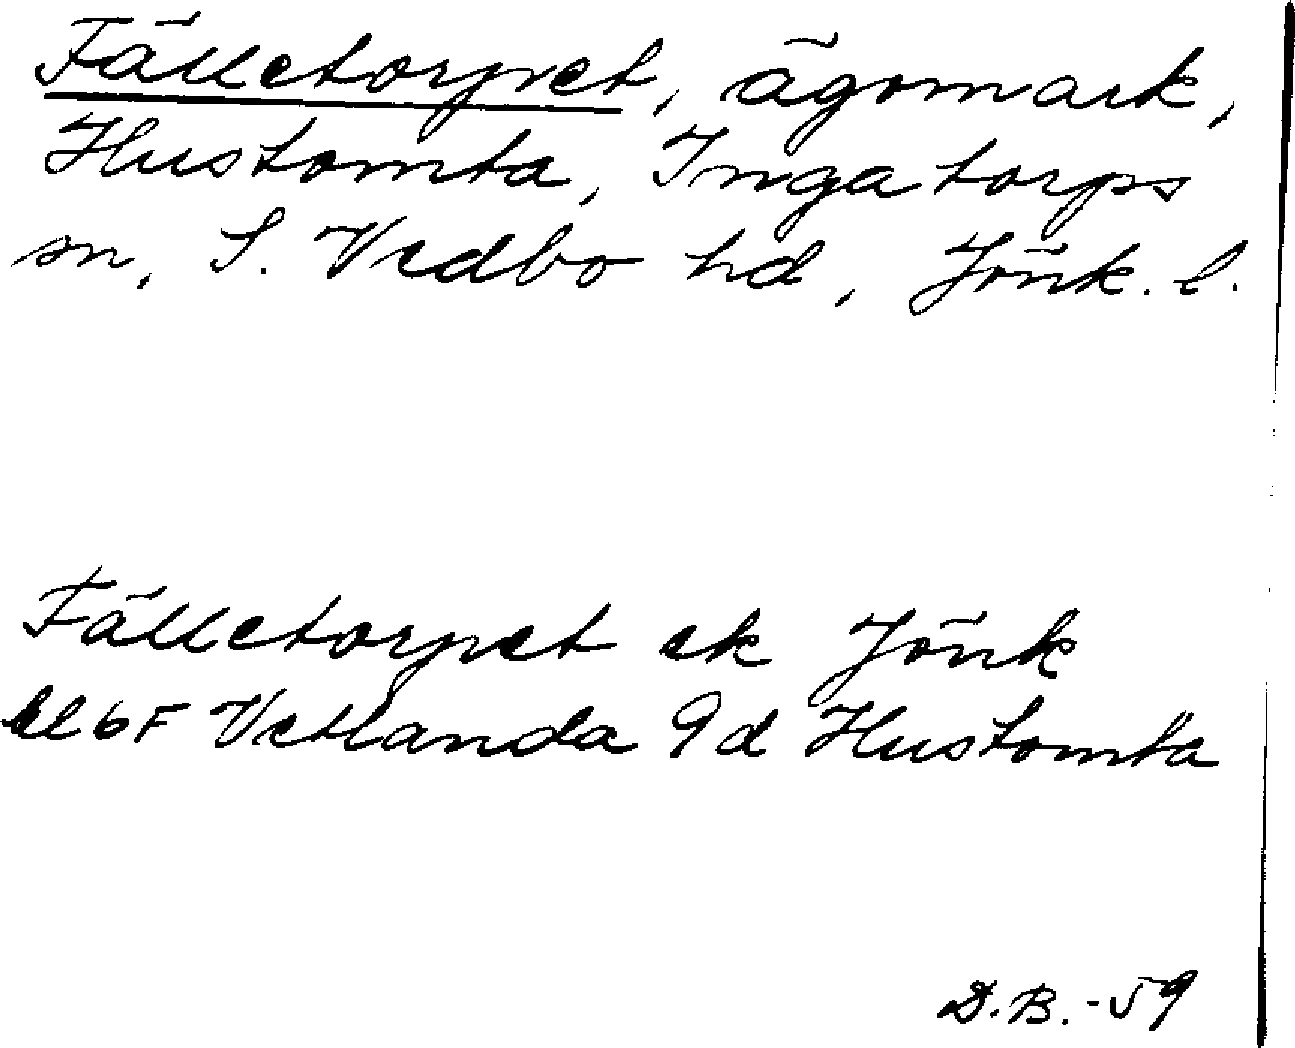 Fälletorpet, ägomark,
Hustomta, Ingatorps
sn, S. Vedbo hd, Jönk. l.
Fälletorpet ek Jönk
bl 6F Vetlanda 9d Hustomta
D.B.-59